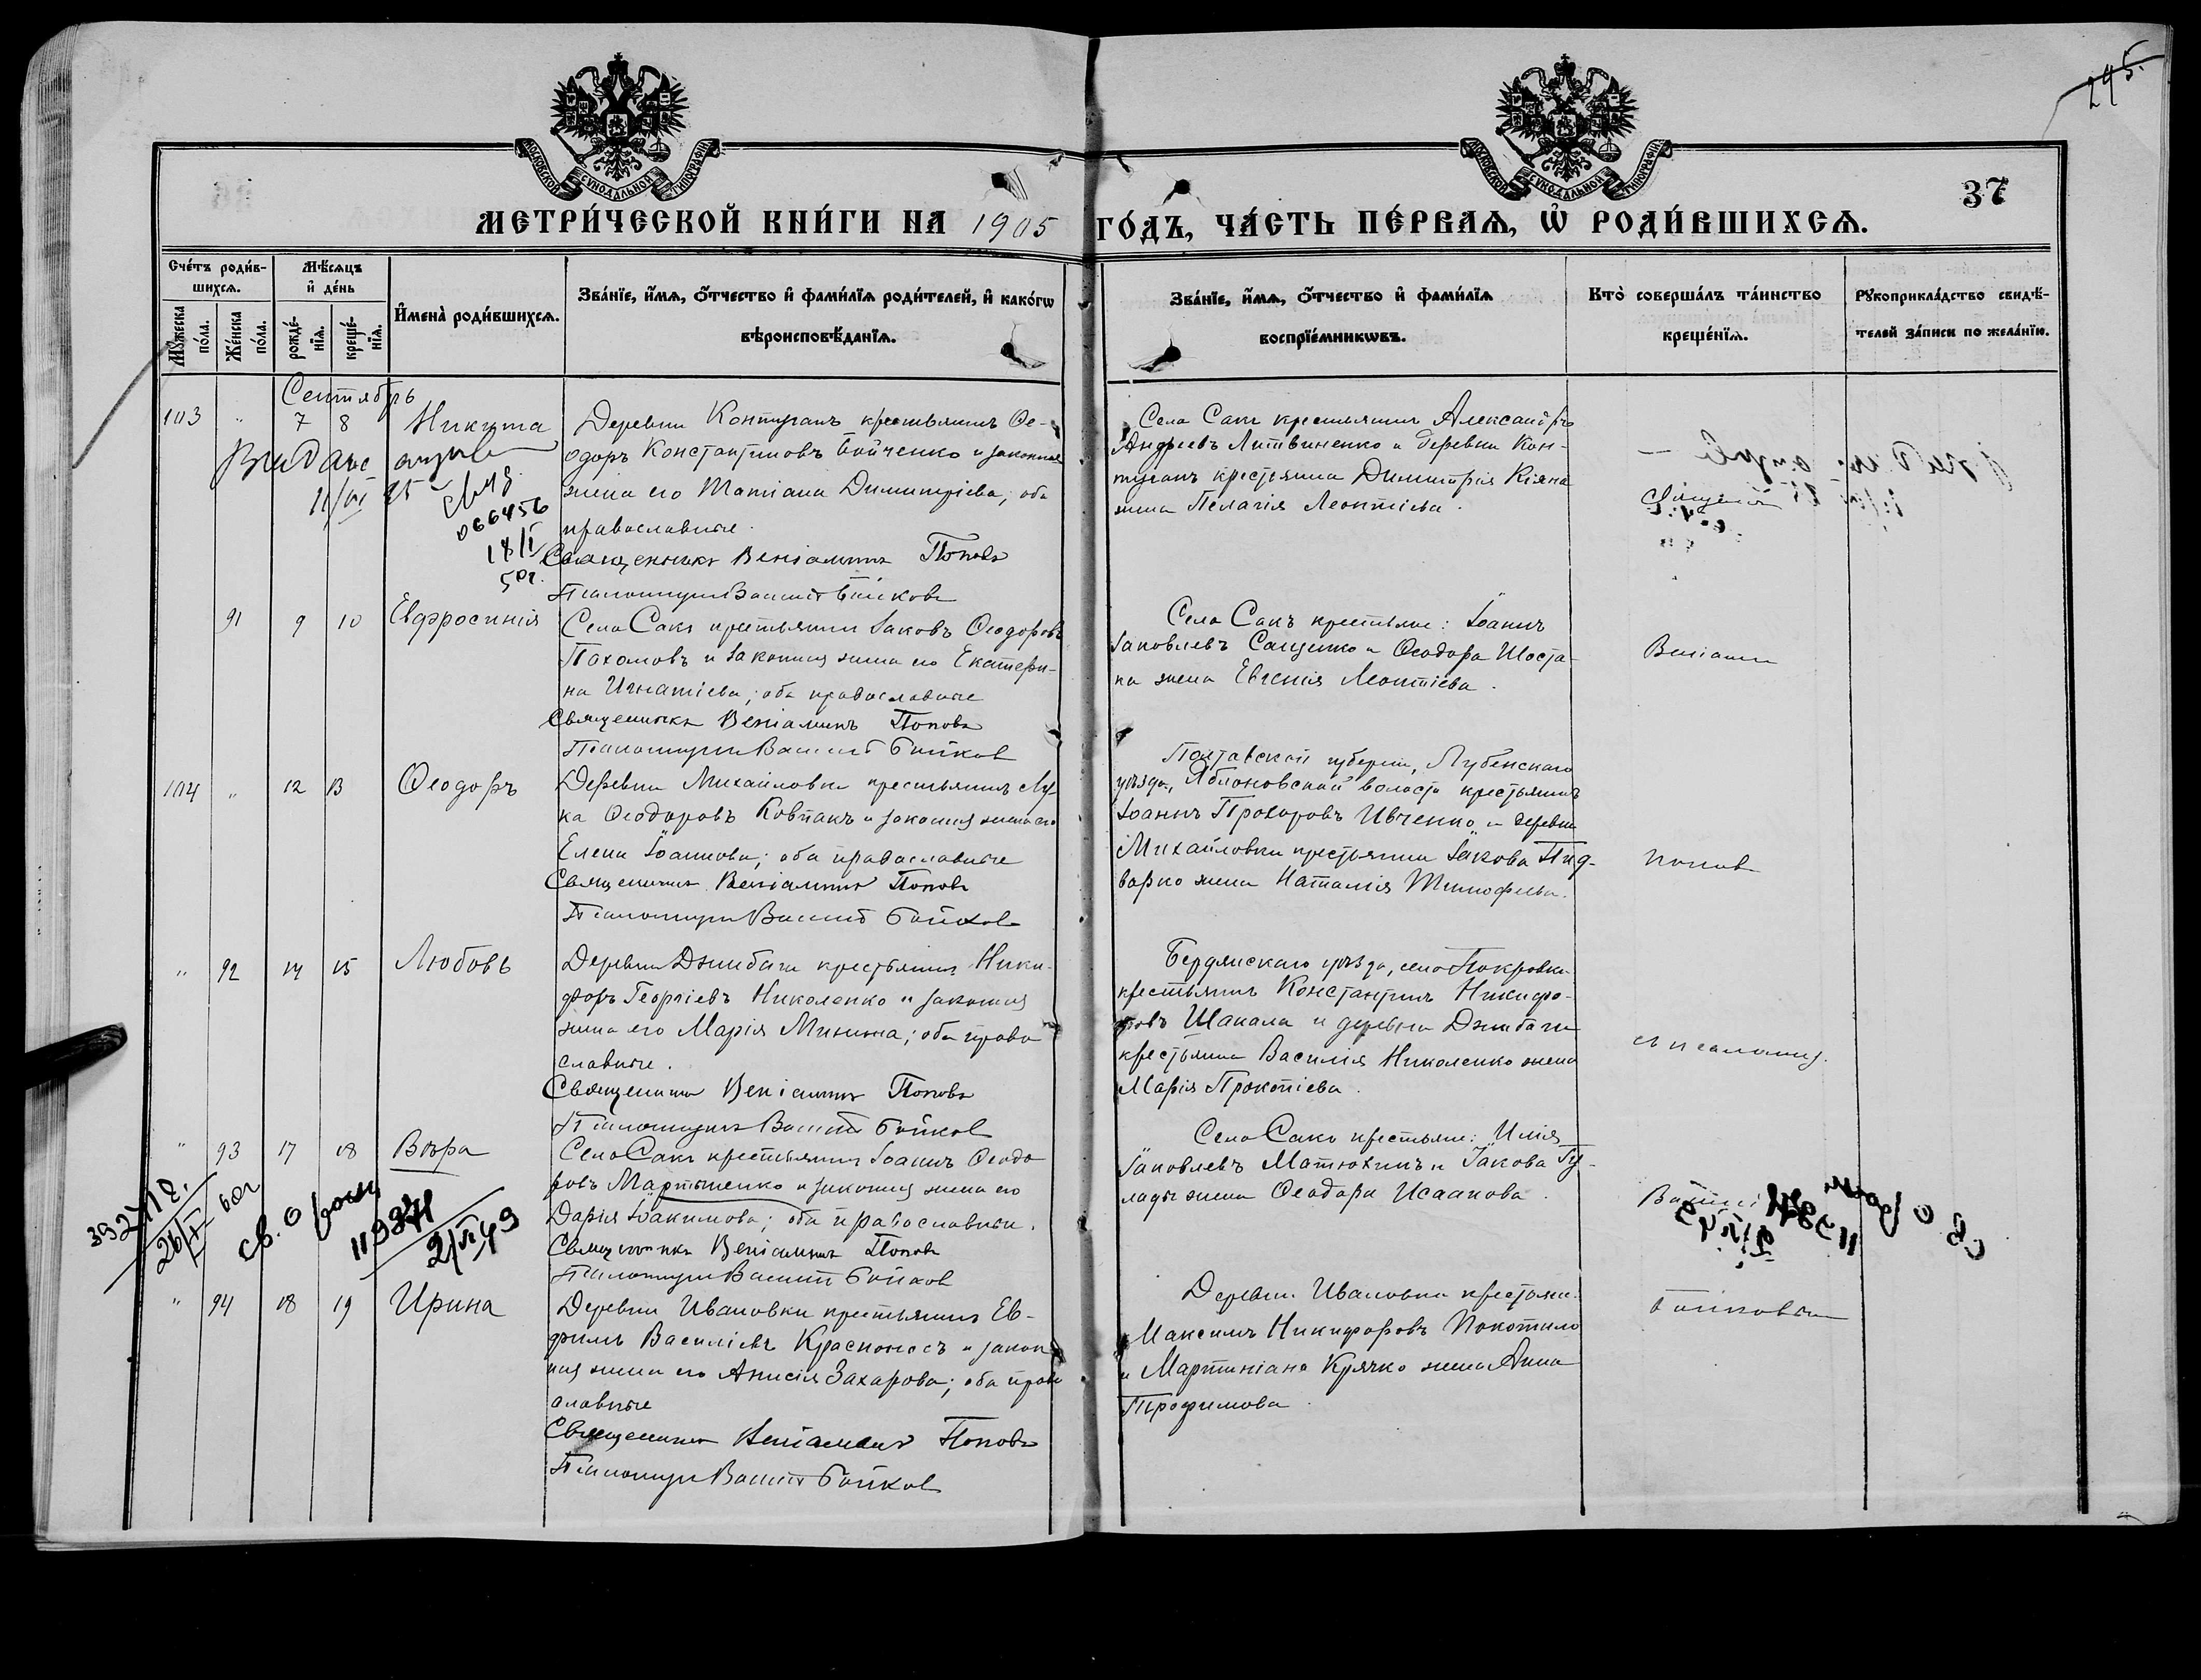 245.
МОСКОВСКОЙ СУНОДАЛЬНОЙ ТИПОГРАФІИ
МОСКОВСКОЙ СУНОДАЛЬНОЙ ТИПОГРАФІИ
37
МЕТРИ́ЧЕСКОЙ КНИ́ГИ НА 1905 ГО́ДЪ, ЧА́СТЬ ПЕ́РВАѦ, Ѡ҆ РОДИ́ВШИХСѦ.
Сче́тъ роди́в-
шихсѧ.
Мꙋ́жеска по́ла.
Же́нска по́ла.
Мѣ́сѧцъ
и҆ де́нь
рожде́-
нїѧ.
креще́-
нїѧ.
И҆мена̀ роди́вшихсѧ.
Зва́нїе, и҆́мѧ, ѻ҆́тчество и҆ фами́лїѧ роди́телей, и҆ како́гѡ
вѣроисповѣ́данїѧ.
Зва́нїе, и҆́мѧ, ѻ҆́тчество и҆ фами́лїѧ
воспрїе́мникѡвъ.
Кто̀ соверша́лъ та́инство
креще́нїѧ.
Рꙋкоприкла́дство свидѣ́-
телей за́писи по жела́нїю.
Сентябрь
103 " 7 8 Никита
Деревни Контуганъ крестьянинъ Ѳе-
одоръ Константиновъ Бойченко и законная
жена его Татіана Димитріева; оба
православные.
Священникъ Веніаминъ Поповъ
Псаломщикъ Василій Бойковъ
Села Сакъ крестьянинъ Александръ
Андреевъ Литвиненко и деревни Кон-
туганъ крестьянина Димитрія Кіяна
жена Пелагія Леонтіева.
Священникъ
11/VI 25
066456
18/I
50г.
91 9 10 Евфросинія
Села Сакъ крестьянинъ Іаковъ Ѳеодоровъ
Пахомовъ и законная жена его Екатери-
на Игнатіева; оба православные
Священникъ Веніаминъ Поповъ
Псаломщикъ Василій Бойковъ
Села Сакъ крестьяне: Іоаннъ
Іаковлевъ Сащенко и Ѳеодора Шоста-
ка жена Евгенія Леонтіева.
Веніаминъ
104 " 12 13 Ѳеодоръ
Деревни Михайловки крестьянинъ Лу-
ка Ѳеодоровъ Ковпакъ и законная жена его
Елена Іоаннова; оба православные
Священникъ Веніаминъ Поповъ
Псаломщикъ Василій Бойковъ
Полтавской губерніи, Лубенскаго
уѣзда, Яблоновской волости крестьянинъ
Іоаннъ Прохоровъ Ивченко и деревни
Михайловки крестьянина Іакова Пид-
варко жена Наталія Тимофеева.
Поповъ
" 92 14 15 Любовь
Деревни Джабачи крестьянинъ Ники-
форъ Георгіевъ Николенко и законная
жена его Марія Минина; оба право
славные.
Священникъ Веніаминъ Поповъ
Псаломщикъ Василій Бойковъ
Бердянскаго уѣзда, села Покровки
крестьянинъ Константинъ Никифо-
ровъ Шакала и деревни Джабачи
крестьянина Василія Николенко жена
Марія Прокопіева.
съ псаломщ.
" 93 17 18 Вѣра
Села Сакъ крестьянинъ Іоаннъ Ѳеодо
ровъ Мартыненко и законная жена его
Дарія Іоакимова; оба православные.
Священникъ Веніаминъ Поповъ
Псаломщикъ Василій Бойковъ
Села Сакъ крестьяне: Илія
Іаковлевъ Матюхинъ и Іакова Гу-
лады жена Ѳеодора Исаакова.
Василі
60г
св. о рожд
2/VI 49
" 94 18 19 Ирина
Деревни Ивановки крестьянинъ Ев-
фимъ Василіевъ Красноносъ и закон
ная жена его Анисія Захарова; оба право
славные
Священникъ Веніаминъ Поповъ
Псаломщикъ Василій Бойковъ
Деревни Ивановки крестьяни.
Максимъ Никифоровъ Покотило
и Мартиніана Крячко жена Анна
Трофимова.
Бойковым